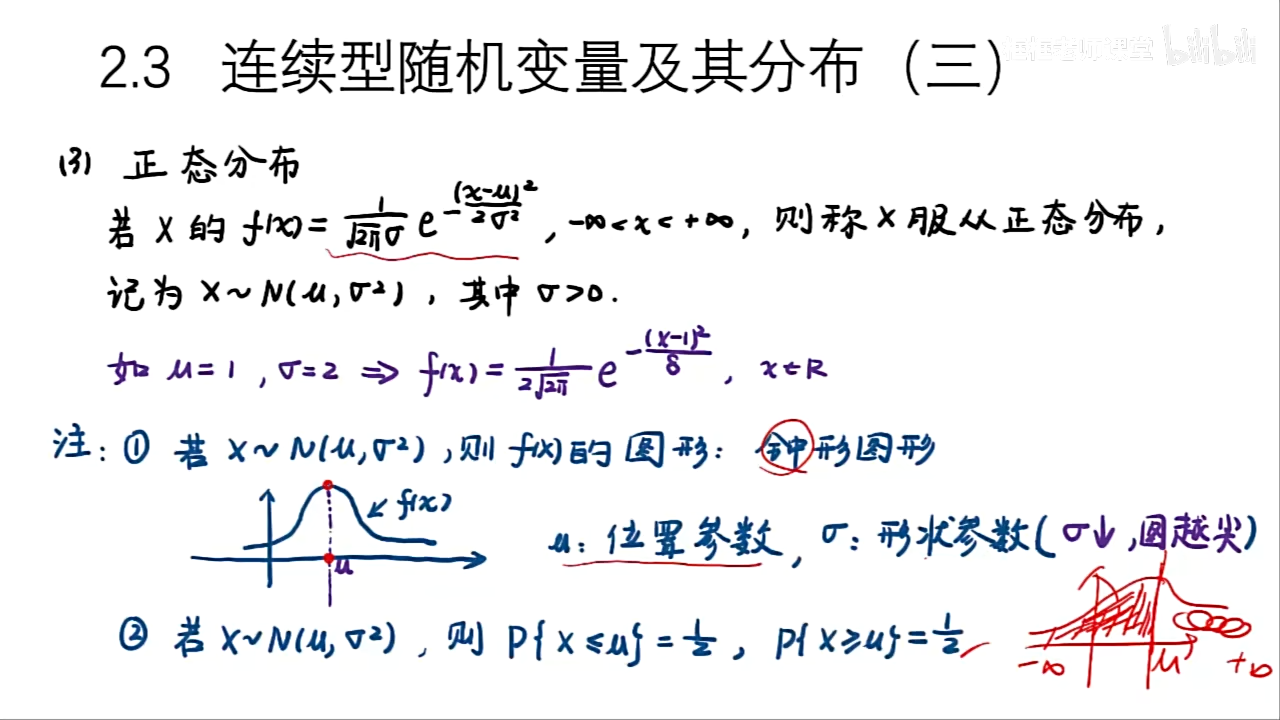 2.3 连续型随机变量及其分布（三）
bilibili
(3) 正态分布
若 X 的 f(x) = \frac{1}{\sqrt{2π}σ} e^{-\frac{(x-μ)^2}{2σ^2}}, -∞<x<+∞, 则称 X 服从正态分布,
记为 X~N(μ, σ²), 其中 σ>0.
如 μ=1, σ=2 ⇒ f(x) = \frac{1}{2\sqrt{2π}} e^{-\frac{(x-1)^2}{8}}, x∈R
注: ① 若 X~N(μ, σ²), 则 f(x) 的图形: 钟形图形
f(x)
μ
μ: 位置参数, σ: 形状参数(σ↓, 图越尖)
② 若 X~N(μ, σ²), 则 P{X≤μ} = \frac{1}{2}, P{X≥μ} = \frac{1}{2}
-∞ μ +∞